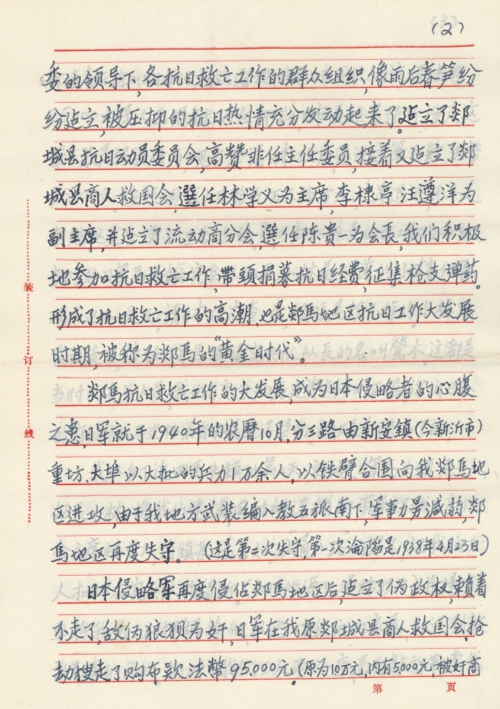 (2)
委的领导下，各抗日救亡工作的群众组织，像雨后春笋纷
纷建立，被压抑的抗日热情充分发动起来了。建立了郯
城县抗日动员委员会，高赞非任主任委员，接着又建立了郯
城县商人救国会，選任林学义为主席，李棣亭汪遵洋为
副主席，并建立了流动商分会，選任陈贵一为会長，我们积极
地参加抗日救亡工作，带頭捐募抗日经费，征集枪支弹药。
形成了抗日救亡工作的高潮，也是郯馬地区抗日工作大发展
时期，被称为郯馬的“黄金时代”。
郯馬抗日救亡工作的大发展，成为日本侵略者的心腹
之患，日軍就于1940年的农曆10月，分三路由新安鎮（今新沂市）
重坊、大埠以大批的兵力1万余人，以铁臂合围向我郯馬地
区进攻，由于我地方武装编入教五旅南下，军事力量減弱，郯
馬地区再度失守。（这是第二次失守，第一次淪陷是1938年4月23日）
日本侵略軍再度侵佔郯馬地区后，建立了伪政权，賴着
不走了，敌伪狼狈为奸，日軍在我原郯城县商人救国会，抢
劫搜走了购布款法幣95.000元（原为10万元，内有5.000元，被奸商
装
订
线
第 页